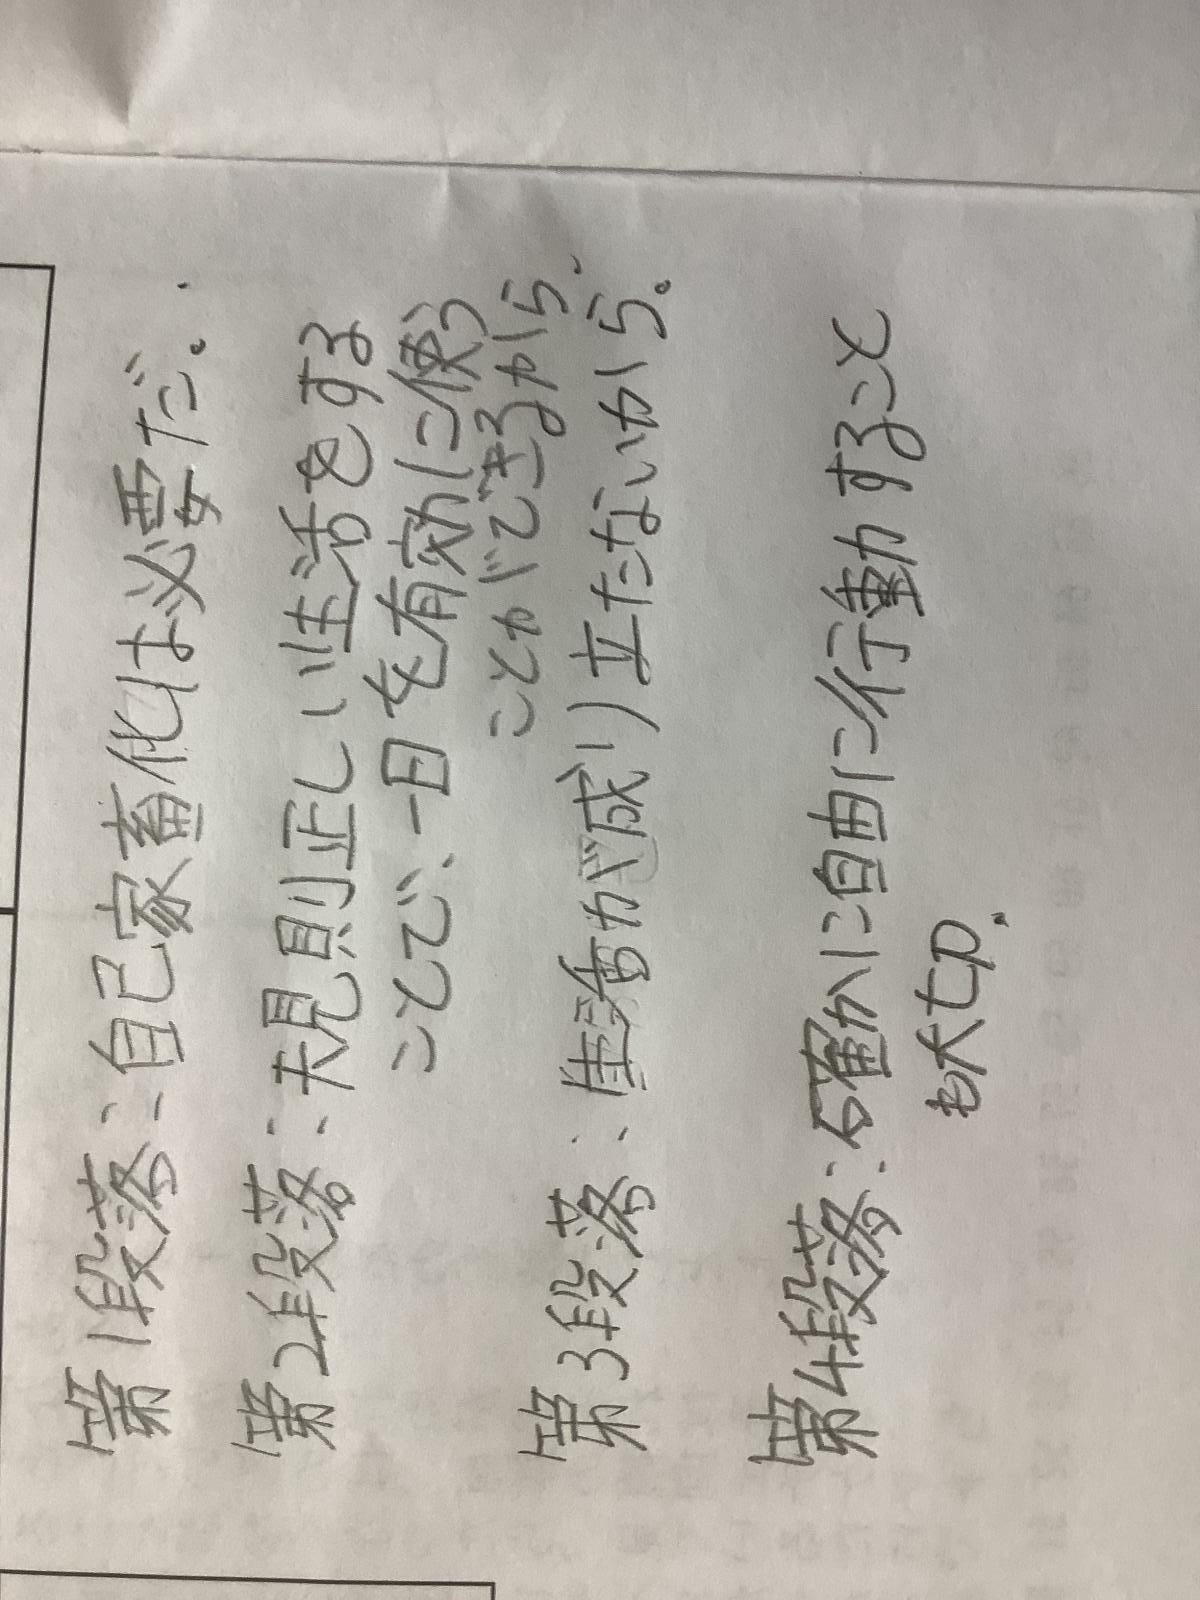 第1段落：自己家畜化は必要だ。
第2段落：規則正しい生活をする
ことで、一日を有効に使う
ことができるから
第3段落：生活が成り立たないから。
第4段落：確かに自由に行動すること
も大切